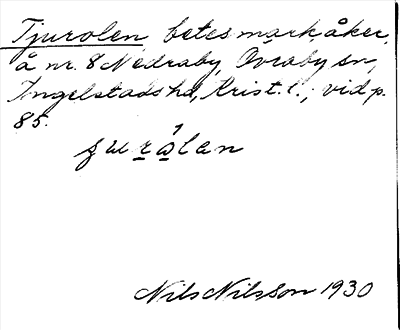 Tjurolen betesmark, åker,
å nr. 8 Nedraby, Övraby sn,
Ingelstads hd, Krist. l.; vid p.
85.
Nils Nilsson 1930